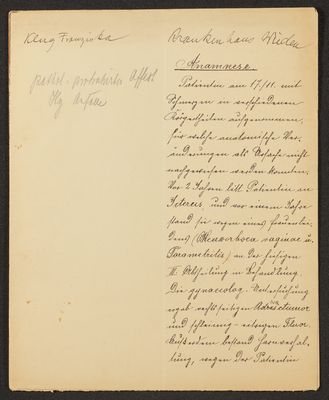 Klug Franziska
Krankenhaus Wieden
Anamnese.
Patientin am 17./11. mit
Schmerzen in verschiedenen
Körperteilen aufgenommen,
für welche anatomische Ver-
änderungen als Ursache nicht
nachgewiesen werden konnten.
Vor 2 Jahren litt Patientin an
Icterus, und vor einem Jahre
stand sie wegen eines Frauenlei-
dens (Blenorrhoea vaginae u.
Parametritis) an der hiesigen
III. Abtheilung in Behandlung.
Die gynaecolog. Untersuchung
ergab rechtsseitigen Adnextumor
und schleimig-eitrigen Fluor.
Außerdem bestand Harnverhal-
tung, wegen der Patientin